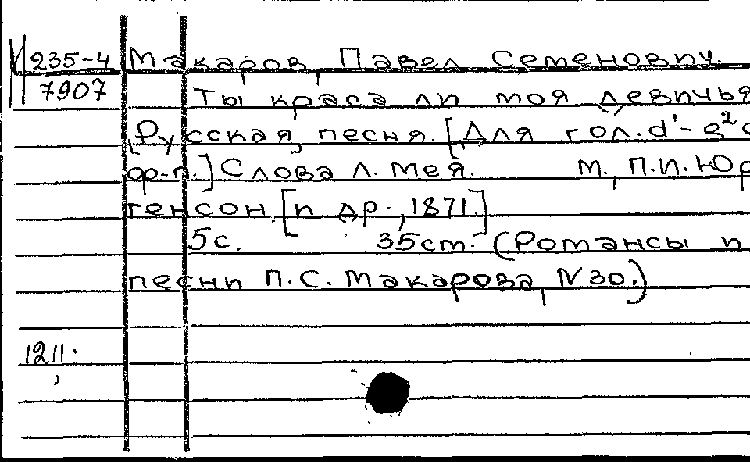 235-4 Макаров, Павел Семенович.
7907 Ты краса ли моя девичья
Русская песня. [Для гол. d¹-g² с
ф-п.] Слова Л. Мея. М., П.И. Юр
генсон [и др., 1871.]
5с. 35см. (Романсы и
песни П.С. Макарова, № 30.)
1211.